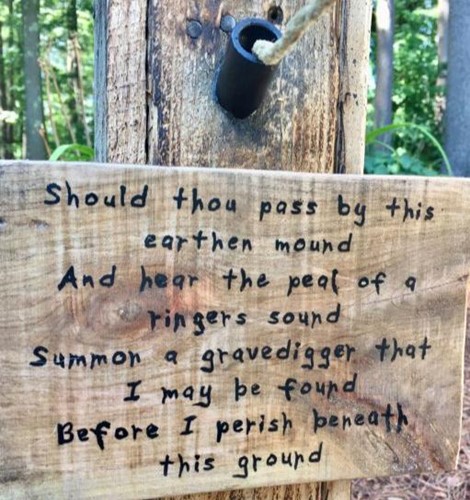 Should thou pass by this
earthen mound
And hear the peal of a
ringers sound
Summon a gravedigger that
I may be found
Before I perish beneath
this ground